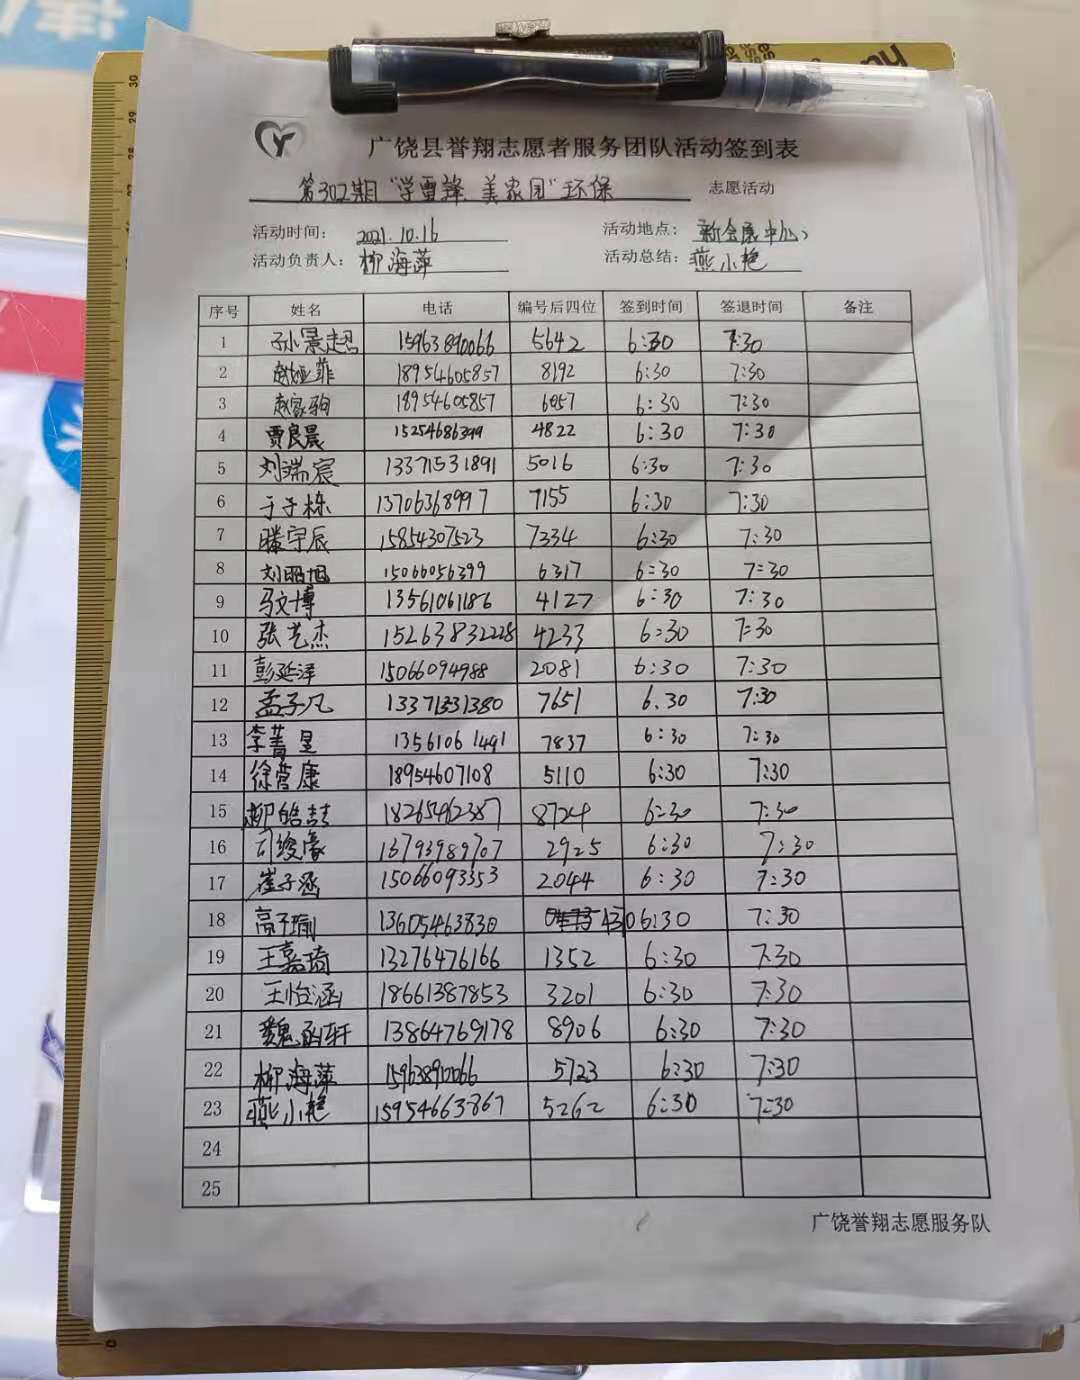 广饶县誉翔志愿者服务团队活动签到表
第302期"学雷锋 美家园"环保 志愿活动
活动时间： 2021.10.16 活动地点： 新会展中心
活动负责人： 柳海萍 活动总结： 燕小艳
序号 姓名 电话 编号后四位 签到时间 签退时间 备注
1 孙景超 15963890066 5642 6:30 7:30
2 赵娅菲 18954605857 8192 6:30 7:30
3 赵家驹 18954605857 6057 6:30 7:30
4 贾良晨 15254686399 4822 6:30 7:30
5 刘瑞宸 13371531891 5016 6:30 7:30
6 于子栋 13706368997 7155 6:30 7:30
7 滕宇辰 15854307523 7334 6:30 7:30
8 刘昭旭 15066056399 6317 6:30 7:30
9 马文博 13561061186 4127 6:30 7:30
10 张艺杰 15263832228 4233 6:30 7:30
11 彭延泽 15066094988 2081 6:30 7:30
12 孟子凡 13371331380 7651 6.30 7:30
13 李菁昱 13561061491 7837 6:30 7:30
14 徐营康 18954607108 5110 6:30 7:30
15 柳皓喆 18265462387 8724 6:30 7:30
16 司绫豪 13793989707 2925 6:30 7:30
17 崔子涵 15066093353 2044 6:30 7:30
18 高子瑜 13605463830 4310 6:30 7:30
19 王嘉琦 13276476166 1352 6:30 7:30
20 王怡涵 18661387853 3201 6:30 7:30
21 魏函轩 13864769178 8906 6:30 7:30
22 柳海萍 15963890066 5723 6:30 7:30
23 燕小艳 15954663867 5262 6:30 7:30
24
25
广饶誉翔志愿服务队